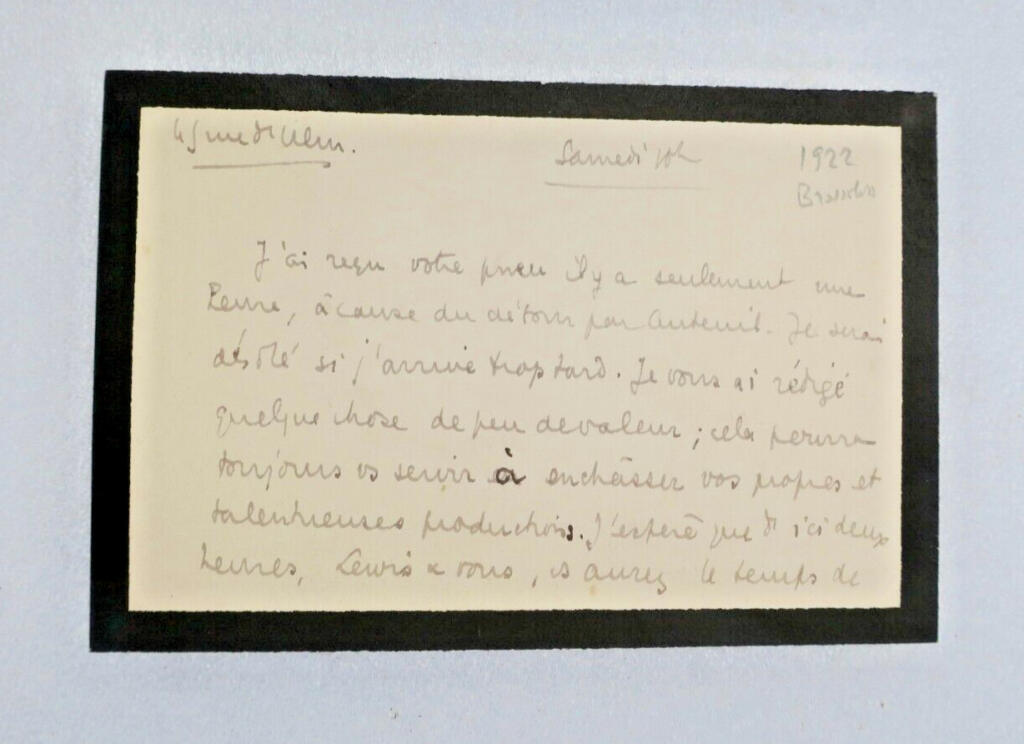 45 rue d'Ulm.
Samedi 10h
1922
J'ai reçu votre pneu il y a seulement une
heure, à cause du détour par Auteuil. Je serai
désolé si j'arrive trop tard. Je vous ai rédigé
quelque chose de peu de valeur ; cela pourra
toujours vs servir à enchâsser vos propres et
talentueuses productions. J'espère que d'ici deux
heures, Lewis & vous, vs aurez le temps de